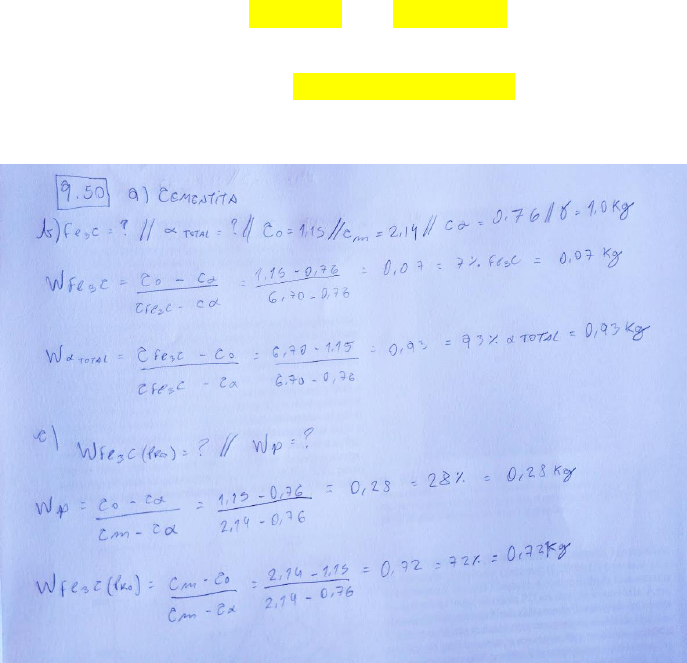 9.50 a) CEMENTITA
b) Fe3C = ? // α TOTAL = ? // C0 = 1,15 // Cm = 2,14 // Cα = 0,76 // γ = 1,0 Kg
WFe3C = C0 - Cα / CFe3C - Cα = 1,15 - 0,76 / 6,70 - 0,76 = 0,07 = 7% Fe3C = 0,07 Kg
Wα TOTAL = CFe3C - C0 / CFe3C - Cα = 6,70 - 1,15 / 6,70 - 0,76 = 0,93 = 93% α TOTAL = 0,93 Kg
c) WFe3C(PRO) = ? // Wp = ?
Wp = C0 - Cα / Cm - Cα = 1,15 - 0,76 / 2,14 - 0,76 = 0,28 = 28% = 0,28 Kg
WFe3C(PRO) = Cm - C0 / Cm - Cα = 2,14 - 1,15 / 2,14 - 0,76 = 0,72 = 72% = 0,72Kg